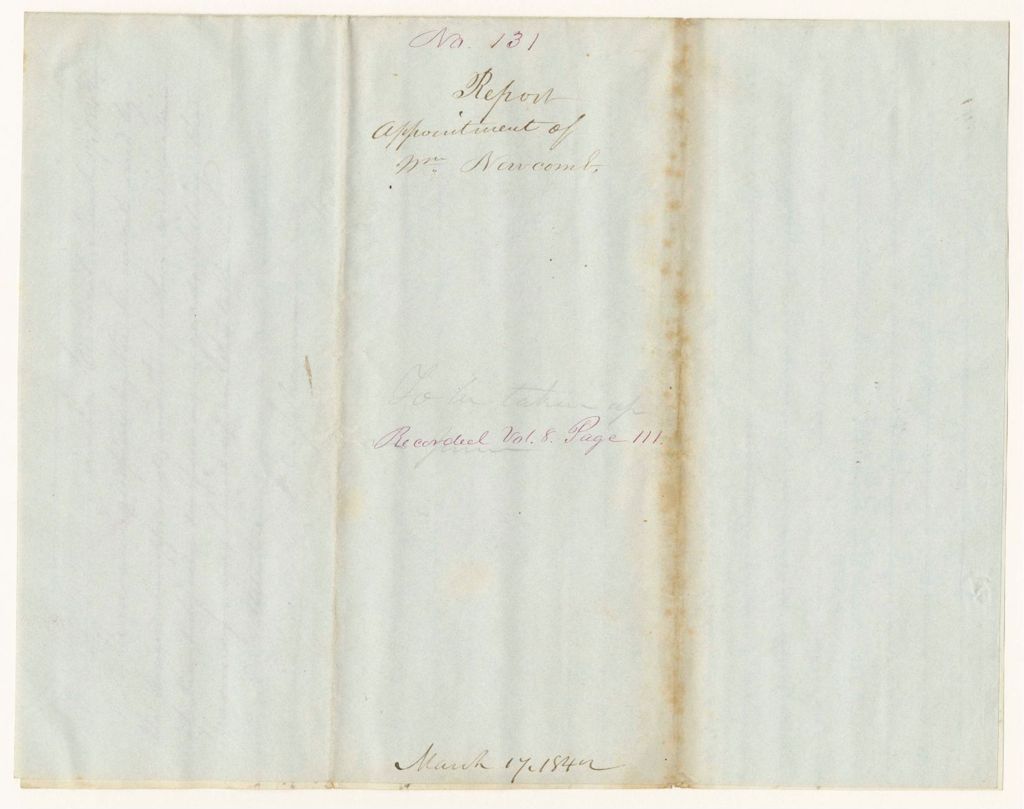 No. 131
Report
Appointment of
Wm Newcomb.
To be taken up
Recorded Vol. 8. Page 111.
March 17. 1842